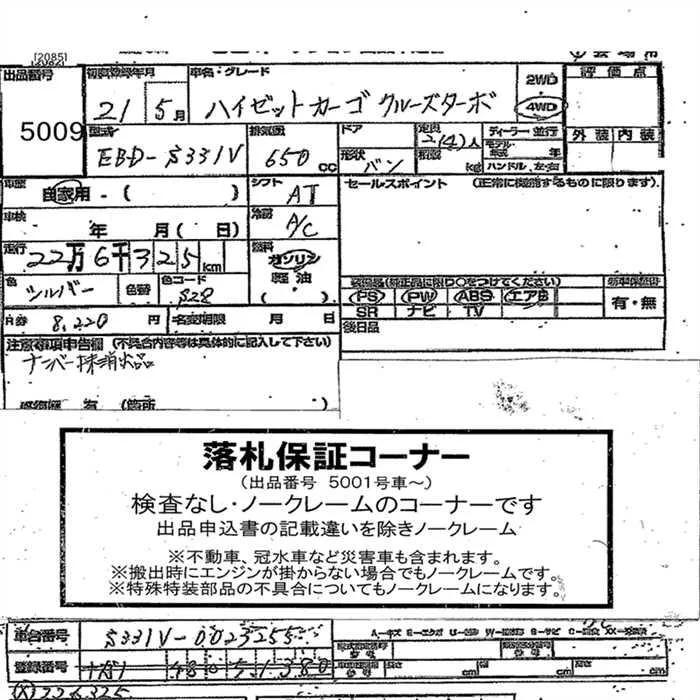 [2085]
出品番号 初度登録年月 車名・グレード 2WD 評価点
5009 21 5月 ハイゼットカーゴ クルーズターボ 4WD
型式 排気量 ドア 定員 2(4)人 ディーラー 並行 外装 内装
EBD-S331V 650cc 形状 バン 積載 kg モデル年式 年 ハンドル 左・右
車歴 自家用・( ) シフト AT セールスポイント (正常に機能するものに限ります)
車検 年 月( 日) 冷房 A/C
走行 22万6千325km 燃料 ガソリン
軽油
色 シルバー 色替 色コード S28 ( ) 装備品(純正品に限り○をつけてください)
PS PW ABS エアB 有・無
R券 8,220円 名変期限 月 日 SR ナビ TV
後日品
注意事項申告欄 (不具合内容等は具体的に記入して下さい)
ナンバー抹消出品
有 (箇所 )
落札保証コーナー
(出品番号 5001号車～)
検査なし・ノークレームのコーナーです
出品申込書の記載違いを除きノークレーム
※不動車、冠水車など災害車も含まれます。
※搬出時にエンジンが掛からない場合でもノークレームです。
※特殊特装部品の不具合についてもノークレームになります。
車台番号 S331V-0023255 A…キズ E…エクボ U…凹み W…補修跡 S…サビ C…腐食 XX…交換済
登録番号 480 5 1380 長さ cm 幅 cm 高さ cm
(X)226325